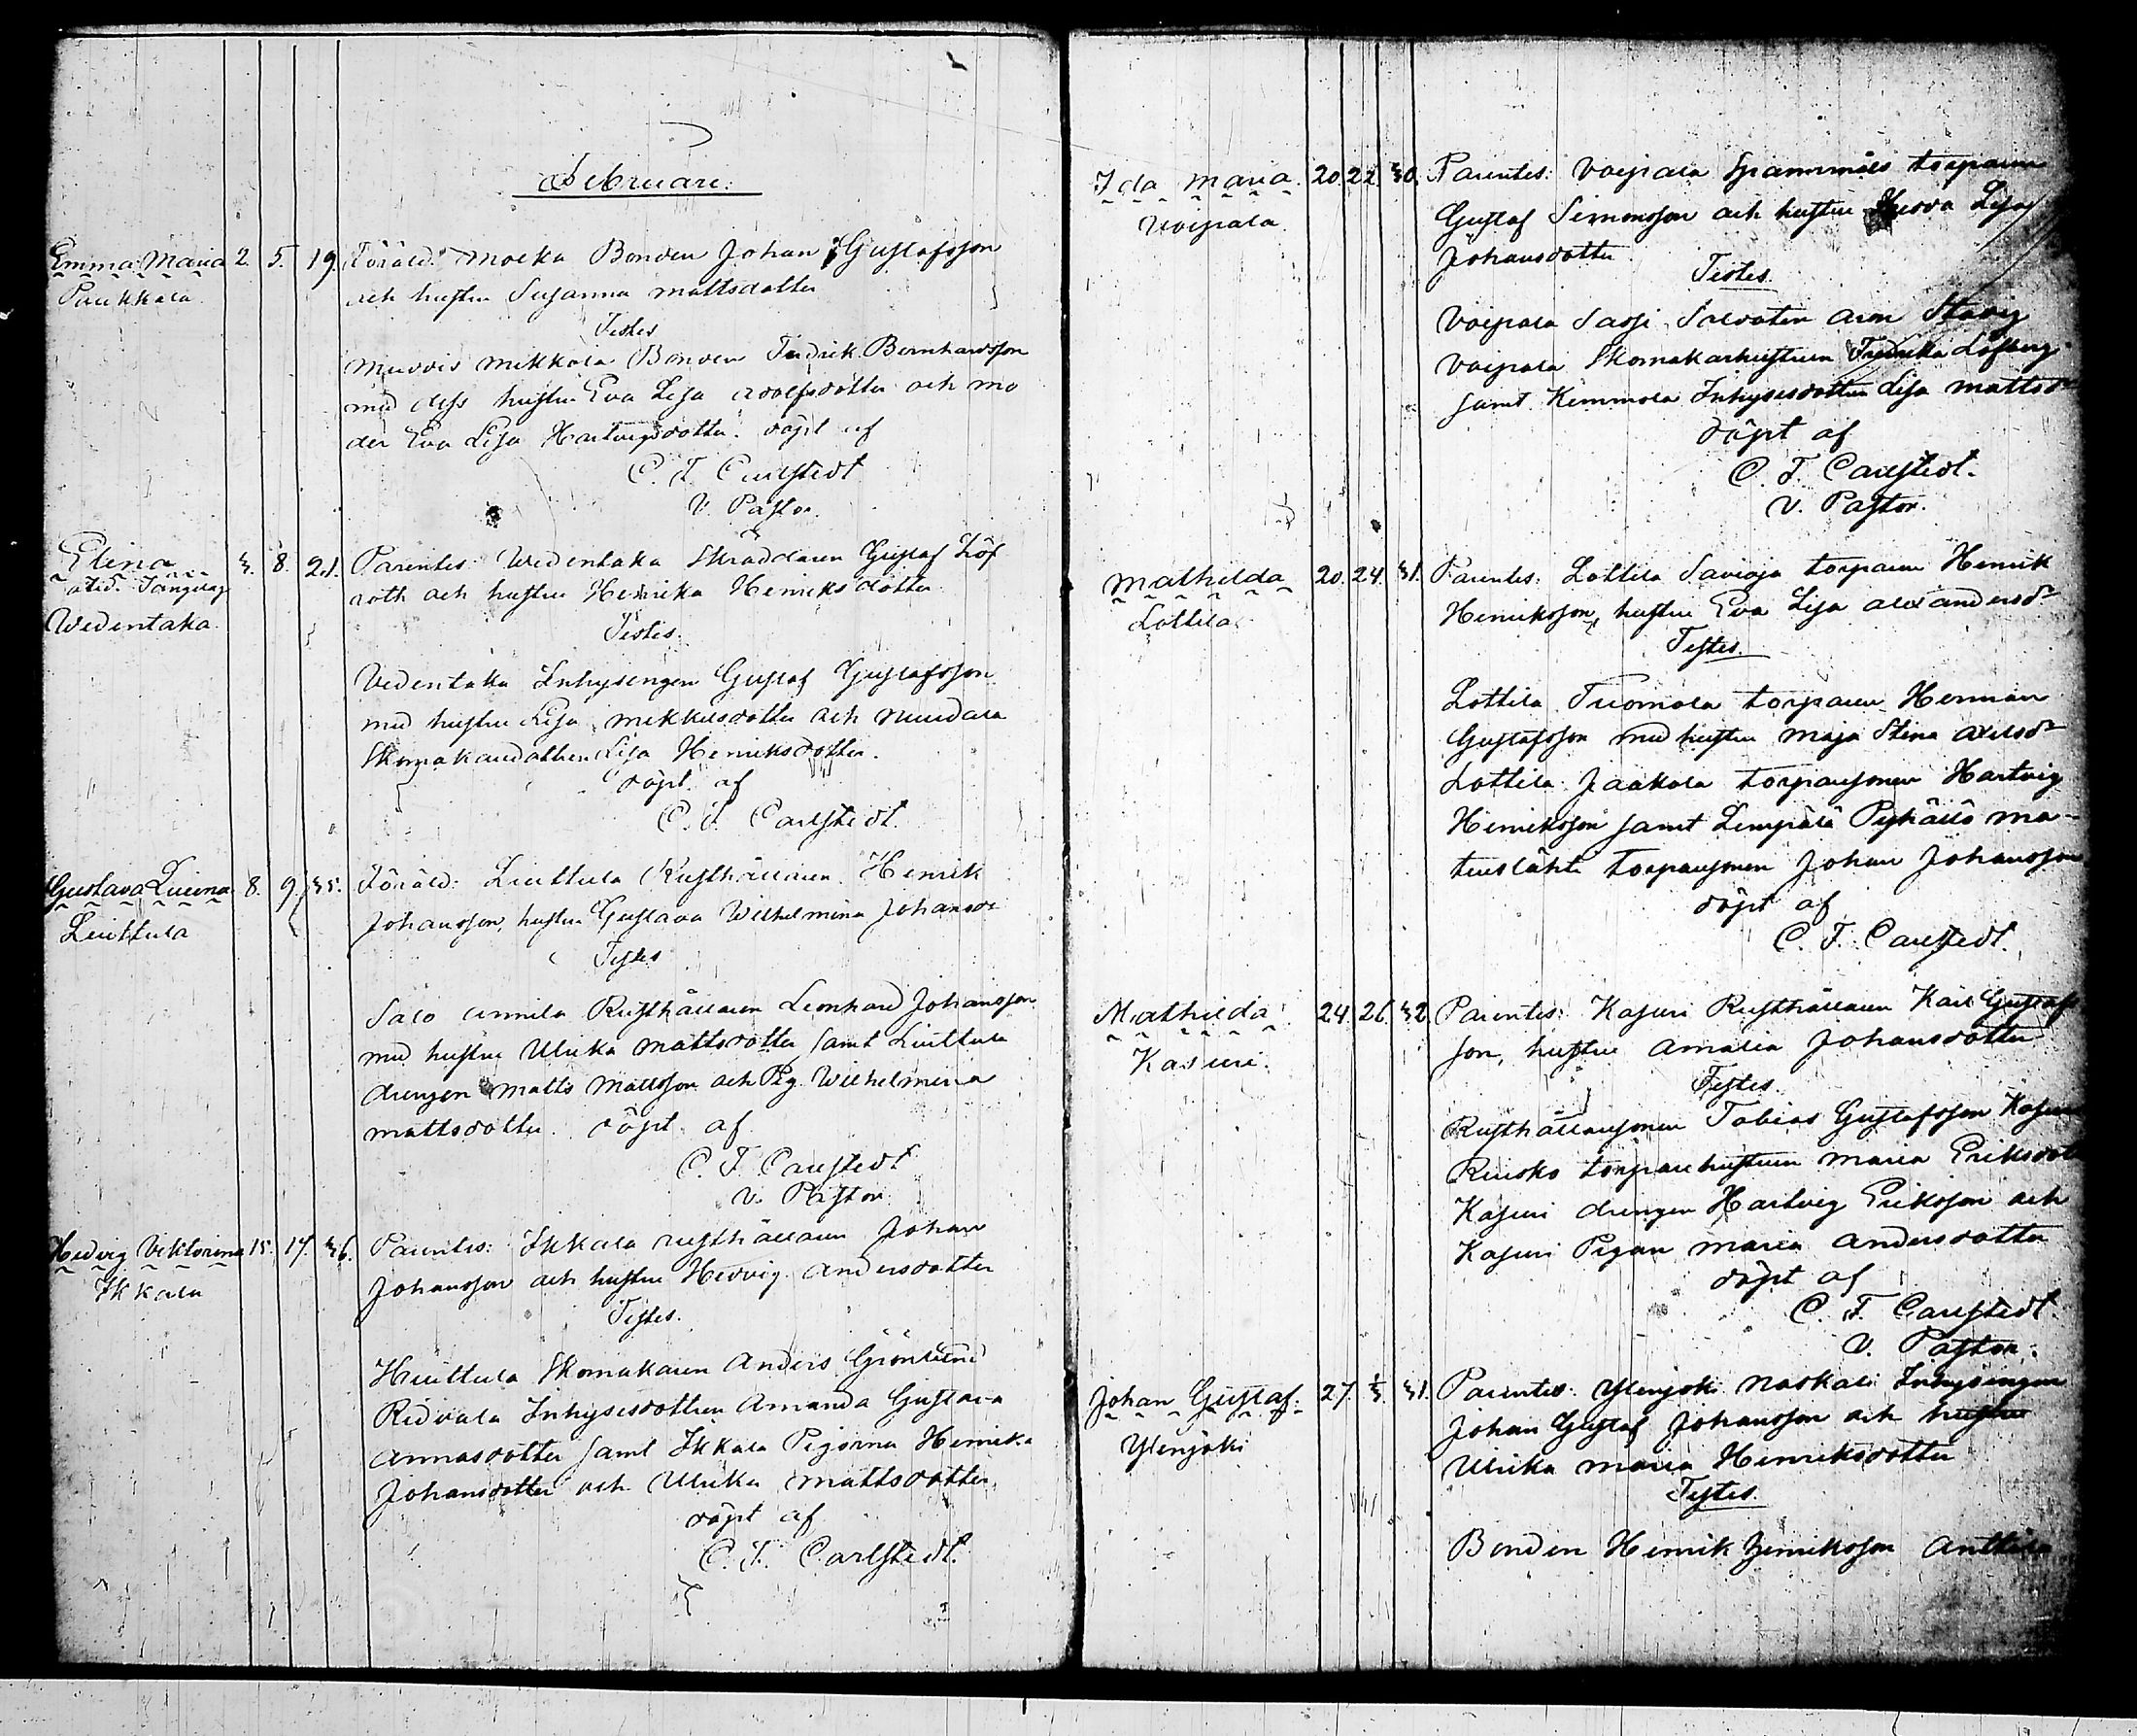 Februari:
Emma Maria 2. 5. 19. Föräld: Moska Bonden Johan Gustafsson
Paukkala. och hustru Susanna Mattsdotter
Testes
Mikkola Bonden Fredrik Bernhardsson
med dess hustru Eva Lisa Adolfsdotter och mo
der Eva Lisa Hartvigsdotter. döpt af
C. F. Carlstedt
V. Pastor.
Elina 3. 8. 21. Parentes: Wedentaka Skräddaren Gustaf Löf
roth och hustru Henrika Henriksdotter
Wedentaka.
Testes.
Vedentaka Inhysingen Gustaf Gustafsson
med hustru Lisa Mikkelsdotter och
Skomakaredottren Lisa Henriksdotter.
döpt af
C. F. Carlstedt.
Gustava Lusina 8. 9. 35. Föräld: Liuttula Rusthållaren Henrik
Liuttula Johansson, hustru Gustava Wilhelmina Johansdr
Testes
Salo Annila Rusthållaren Leonhard Johansson
med hustru Ulrika Mattsdotter samt Liuttula
drengen Matts Mattsson och Pig. Wilhelmina
Mattsdotter. döpt af
C. F. Carlstedt
V. Pastor.
Hedvig Viktorina 15. 17. 36. Parentes: Ikkala rusthållaren Johan
Ikkala Johansson och hustru Hedvig Andersdotter
Testes.
Huittula Skomakaren Anders Grönlund
Ridvala Inhysesdottren Amanda Gustava
Annasdotter samt Ikkala Pigorna Henrika
Johansdotter och Ulrika Mattsdotter,
döpt af
C. F. Carlstedt.
Ida Maria. 20. 22. 30. Parentes: Voipala torparen
Voipala Gustaf Simonsson och hustru Lisa
Johansdotter.
Testes.
Voipala Sarsi Soldaten Aron
Voipala Skomakarhustrun Fredrika Löfberg
samt Kemmola Inhysesdottren Lisa Mattsdr
döpt af
C. F. Carlstedt.
V. Pastor.
Mathilda 20. 24. 31. Parentes: Lottila Savioja torparen Henrik
Lottila Henriksson, hustru Eva Lisa Alexandersdr
Testes.
Lottila Tuomola torparen Herman
Gustafsson med hustru Maja Stina Axelsdr
Lottila Jaakola torparesonen Hartvig
Henriksson samt Lempälä Pyhällö ma-
tuslähti torparesonen Johan Johansson
döpt af
C. F. Carlstedt.
Mathilda 24. 26. 32. Parentes: Kasuri Rusthållaren Karl Gustafs
Kasuri. son, hustru Amalia Johansdotter
Testes.
Rusthållaresonen Tobias Gustafsson Kasuri
Ruisko torparehustrun Maria Eriksdot
Kasuri drengen Hartvig Eriksson och
Kasuri Pigan Maria Andersdotter
döpt af
C. F. Carlstedt.
V. Pastor.
Johan Gustaf. 27. Parentes: Ylenjoki Naskali Inhysingen
Ylenjoki Johan Gustaf Johansson och hustru
Ulrika Maria Henriksdotter
Testes.
Bonden Henrik Henriksson Anttila